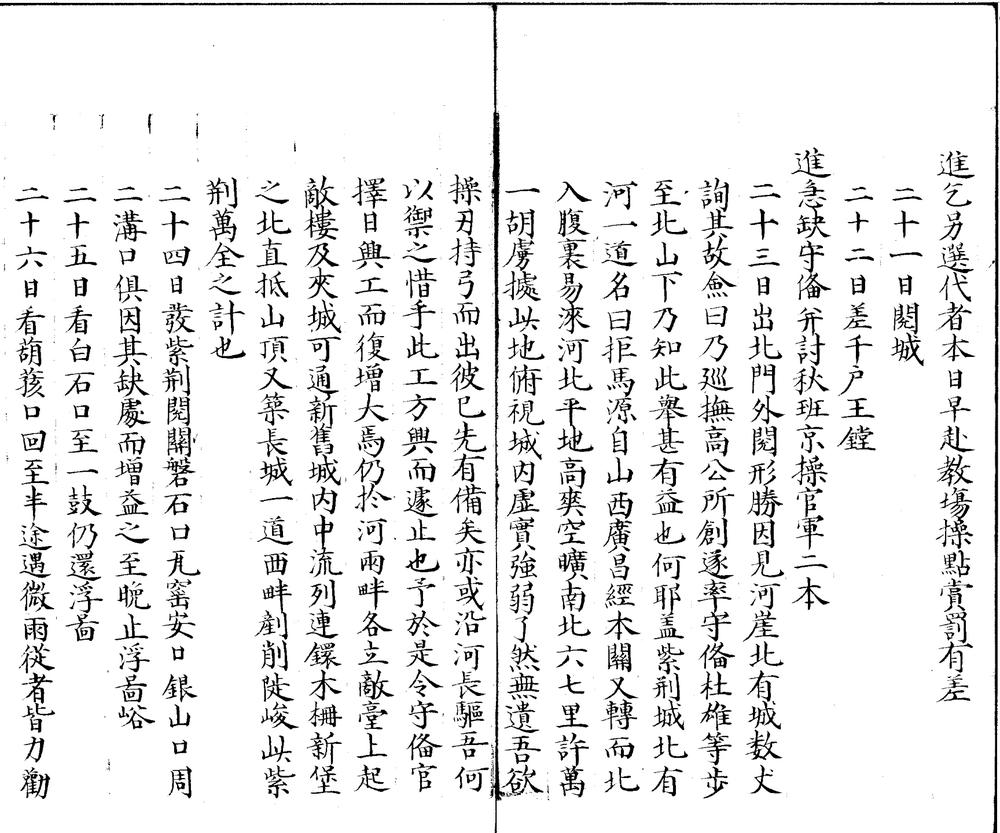 進乞另選代者本日早赴教塲操點賞罰有差
二十一日閱城
二十二日差千户王鏜
進急缺守俻并討秋班京操官軍二本
二十三日出北門外閱形勝因見河崖北有城数丈
詢其故僉曰乃廵撫高公所創遂率守俻杜雄等步
至北山下乃知此舉甚有益也何耶盖紫荆城北有
河一道名曰拒馬源自山西廣昌經本關又轉而北
入腹裏易淶河北平地高爽空曠南北六七里許萬
一胡虜據此地俯視城内虚實強弱了然無遺吾欲
操刃持弓而出彼已先有備矣亦或沿河長驅吾何
以禦之惜乎此工方興而遽止也予於是令守俻官
擇日興工而復增大焉仍於河兩畔各立敵臺上起
敵樓及夾城可通新舊城内中流列連鐶木柵新堡
之北直抵山頂又築長城一道西畔剷削陡峻此紫
荆萬全之計也
二十四日發紫荆閱關磐石口瓦窑安口銀山口周
二溝口俱因其缺處而增益之至晚止浮啚峪
二十五日看白石口至一鼓仍還浮啚
二十六日看葫荄口回至半途遇微雨從者皆力勸